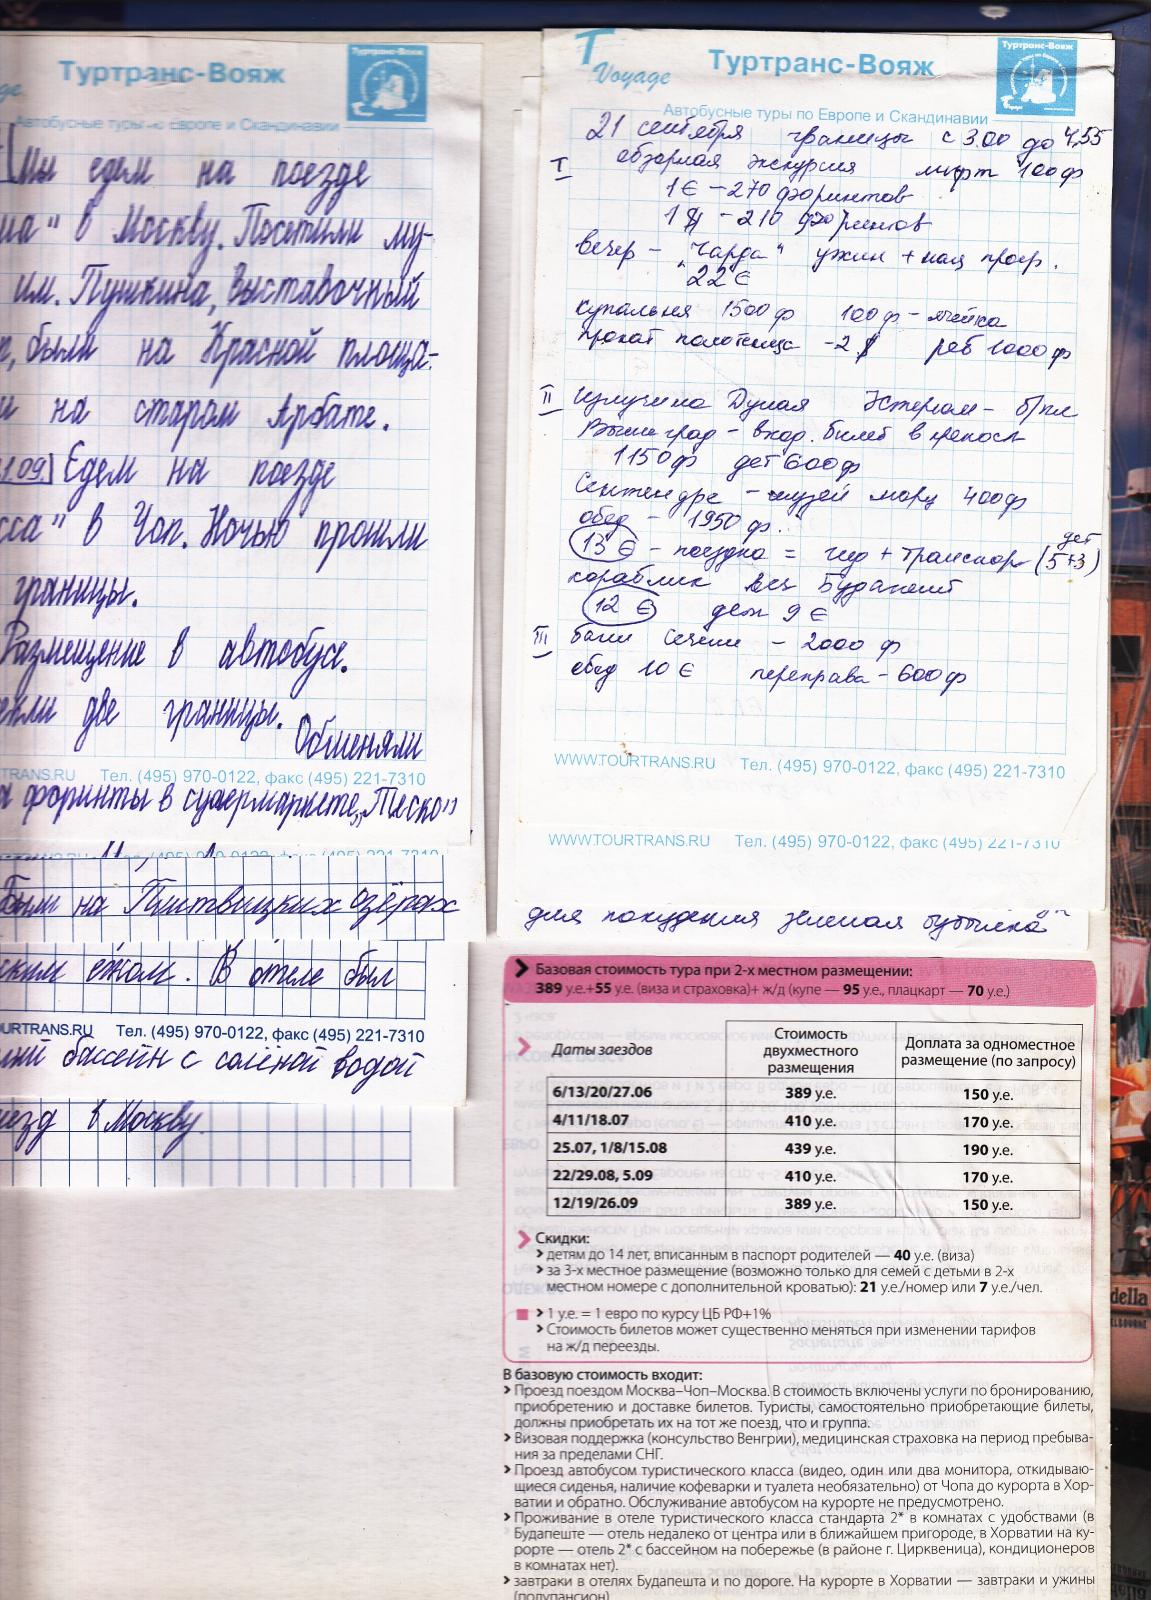 Туртранс-Вояж
Туртранс-Вояж
Автобусные туры по Европе и Скандинавии
Мы едем на поезде
на" в Москву. Посетили му-
им. Пушкина, выставочный
были на Красной площа-
и на старом Арбате.
1.09. Едем на поезде
сса" в Чоп. Ночью прошли
границы.
Размещение в автобусе.
две границы. Обменяли
TRANS.RU Тел. (495) 970-0122, факс (495) 221-7310
форинты в супермаркете „Теско"
Были на Плитвицких озёрах
ским ёжом. В отеле был
OURTRANS.RU Тел. (495) 970-0122, факс (495) 221-7310
бассейн с солёной водой
езд в Москву.
T Voyage
Туртранс-Вояж
Туртранс-Вояж
Автобусные туры по Европе и Скандинавии
21 сентября границы с 3.00 до 4,55
I обзорная экскурсия лифт 100ф
1€ – 270 форинтов
1$ – 210 форинтов
вечер – „Чарда" ужин + нац прогр.
22€
купальня 1500ф 100ф – ячейка
прокат полотенца – 2$ реб 1000ф
II излучина Дуная Эстергом – б/пл
Вышеград – вход. билет в крепость
1150ф дет 600ф
Сентендре – музей марц 400ф
обед – 1950 ф.
13€ – поездка = гид + транспорт (5+3) дет
кораблик Будапешт
12€ дети 9€
III бани Сечени – 2000 ф
обед 10€ переправа – 600ф
WWW.TOURTRANS.RU Тел. (495) 970-0122, факс (495) 221-7310
WWW.TOURTRANS.RU Тел. (495) 970-0122, факс (495) 221-7310
для похудения зелёная бутылка"
Базовая стоимость тура при 2-х местном размещении:
389 у.е.+55 у.е. (виза и страховка)+ ж/д (купе — 95 у.е., плацкарт — 70 у.е.)
Даты заездов Стоимость двухместного размещения Доплата за одноместное размещение (по запросу)
6/13/20/27.06 389 у.е. 150 у.е.
4/11/18.07 410 у.е. 170 у.е.
25.07, 1/8/15.08 439 у.е. 190 у.е.
22/29.08, 5.09 410 у.е. 170 у.е.
12/19/26.09 389 у.е. 150 у.е.
Скидки:
детям до 14 лет, вписанным в паспорт родителей — 40 у.е. (виза)
за 3-х местное размещение (возможно только для семей с детьми в 2-х
местном номере с дополнительной кроватью): 21 у.е./номер или 7 у.е./чел.
1 у.е. = 1 евро по курсу ЦБ РФ+1%
Стоимость билетов может существенно меняться при изменении тарифов
на ж/д переезды.
В базовую стоимость входит:
Проезд поездом Москва–Чоп–Москва. В стоимость включены услуги по бронированию,
приобретению и доставке билетов. Туристы, самостоятельно приобретающие билеты,
должны приобретать их на тот же поезд, что и группа.
Визовая поддержка (консульство Венгрии), медицинская страховка на период пребыва-
ния за пределами СНГ.
Проезд автобусом туристического класса (видео, один или два монитора, откидываю-
щиеся сиденья, наличие кофеварки и туалета необязательно) от Чопа до курорта в Хор-
ватии и обратно. Обслуживание автобусом на курорте не предусмотрено.
Проживание в отеле туристического класса стандарта 2* в комнатах с удобствами (в
Будапеште — отель недалеко от центра или в ближайшем пригороде, в Хорватии на ку-
рорте — отель 2* с бассейном на побережье (в районе г. Цирквеница), кондиционеров
в комнатах нет).
завтраки в отелях Будапешта и по дороге. На курорте в Хорватии — завтраки и ужины
(полупансион)
della